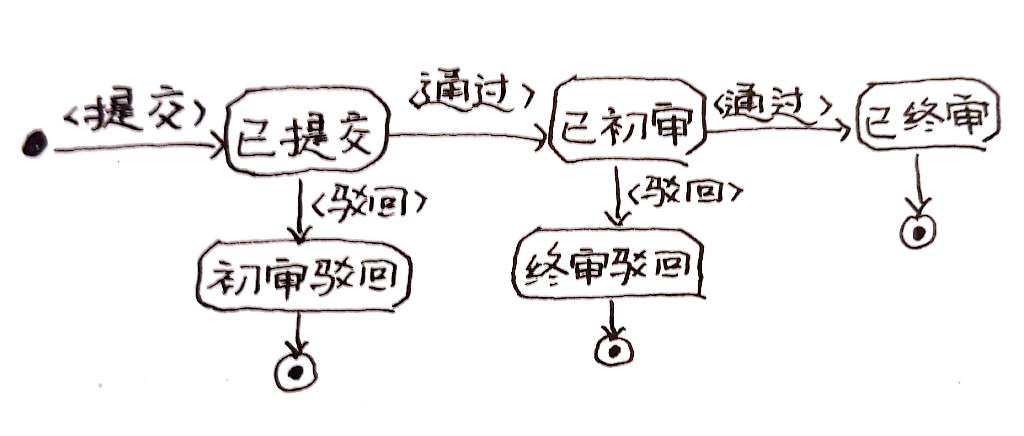 <提交>
已提交
<通过>
已初审
<通过>
已终审
<驳回>
<驳回>
初审驳回
终审驳回